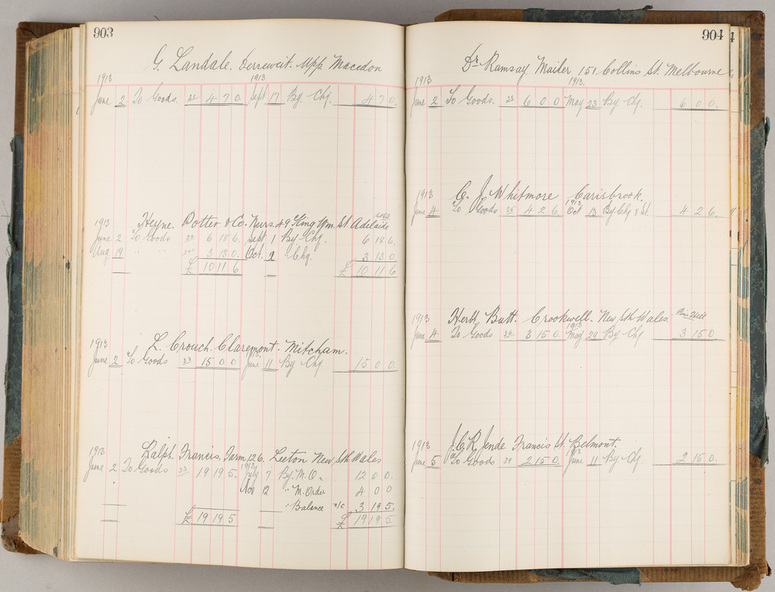 903
G. Landale. Derreweit. Upp Macedon
1913 1913
June 2 To Goods. 4 7 0. Sept 17 By Chq. 4 7 0.
1913 Heyne. Potter & Co. Nurs. 49 King Wm. St. Adelaide
June 2 To Goods 6 18 6. Sept 1 By Chq. 6 18 6.
Aug 19 " " 3 13 0. Oct. 9 " Chq. 3 13 0.
£ 10 11 6 £ 10 11 6
1913 L. Crouch. Claremont. Mitcham.
June 2 To Goods 15 0 0. June 11 By Chq 15 0 0.
1913 Ralph Francis. Farm 126. Leeton New Sth Wales
June 2 To Goods 19 19 5. July 7 By M.O. 12 0 0.
Nov 12 " M. Order 4 0 0
Balance 3 19 5
£ 19 19 5 £ 19 19 5
904
Dr. Ramsay Mailer 151 Collins St. Melbourne
1913 1913
June 2 To Goods. 6 0 0 May 23 By Chq. 6 0 0.
1913 C. J. Whitmore Carisbrook.
June 4 To Goods 4 2 6 Oct 13 By Chq & St. 4 2 6.
1913 Herbt Butt. Crookwell. New Sth Wales
June 4 To Goods 3 15 0 May 29 By Chq 3 15 0
1913 J. C. R. Jende Francis St. Belmont.
June 5 To Goods 2 15 0. June 11 By Chq 2 15 0